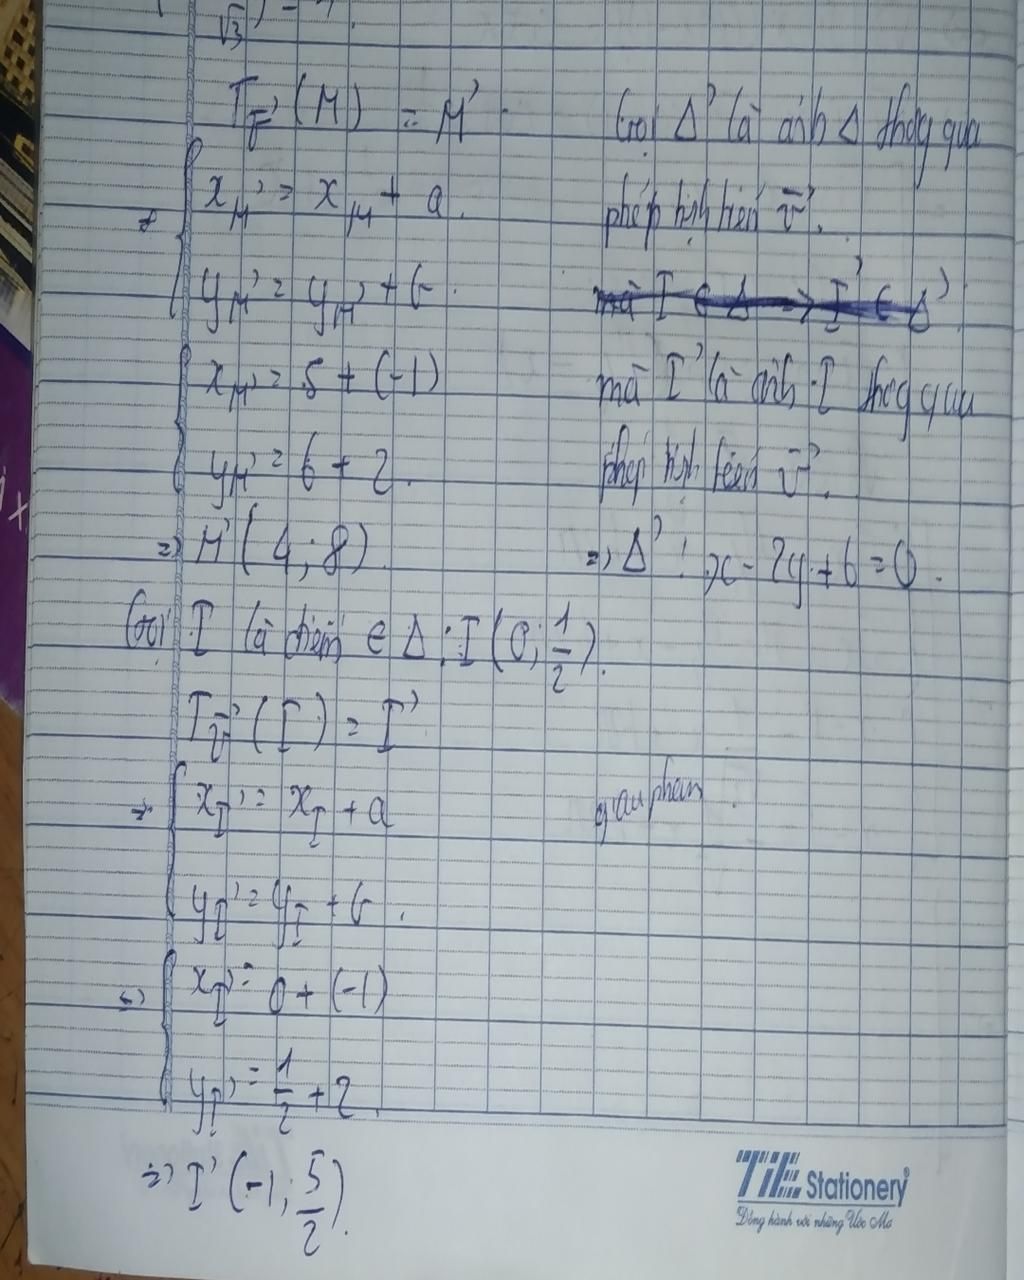 √3
T_v⃗ (M) = M'
x_M' = x_M + a.
y_M' = y_M + b.
x_M' = 5 + (-1)
y_M' = 6 + 2.
=> M' (4; 8)
Gọi I là điểm ∈ Δ : I (0; 1/2).
T_v⃗ (I) = I'
=> x_I' = x_I + a
y_I' = y_I + b.
<=> x_I' = 0 + (-1)
y_I' = 1/2 + 2.
=> I' (-1; 5/2).
Gọi Δ' là ảnh Δ thog qua
phép tịnh tiến v⃗.
mà I ∈ Δ => I' ∈ Δ'
mà I' là ảnh I thog qua
phép tịnh tiến v⃗.
=> Δ' : x - 2y + 6 = 0.
TiE Stationery
Đồng hành với những Ước Mơ